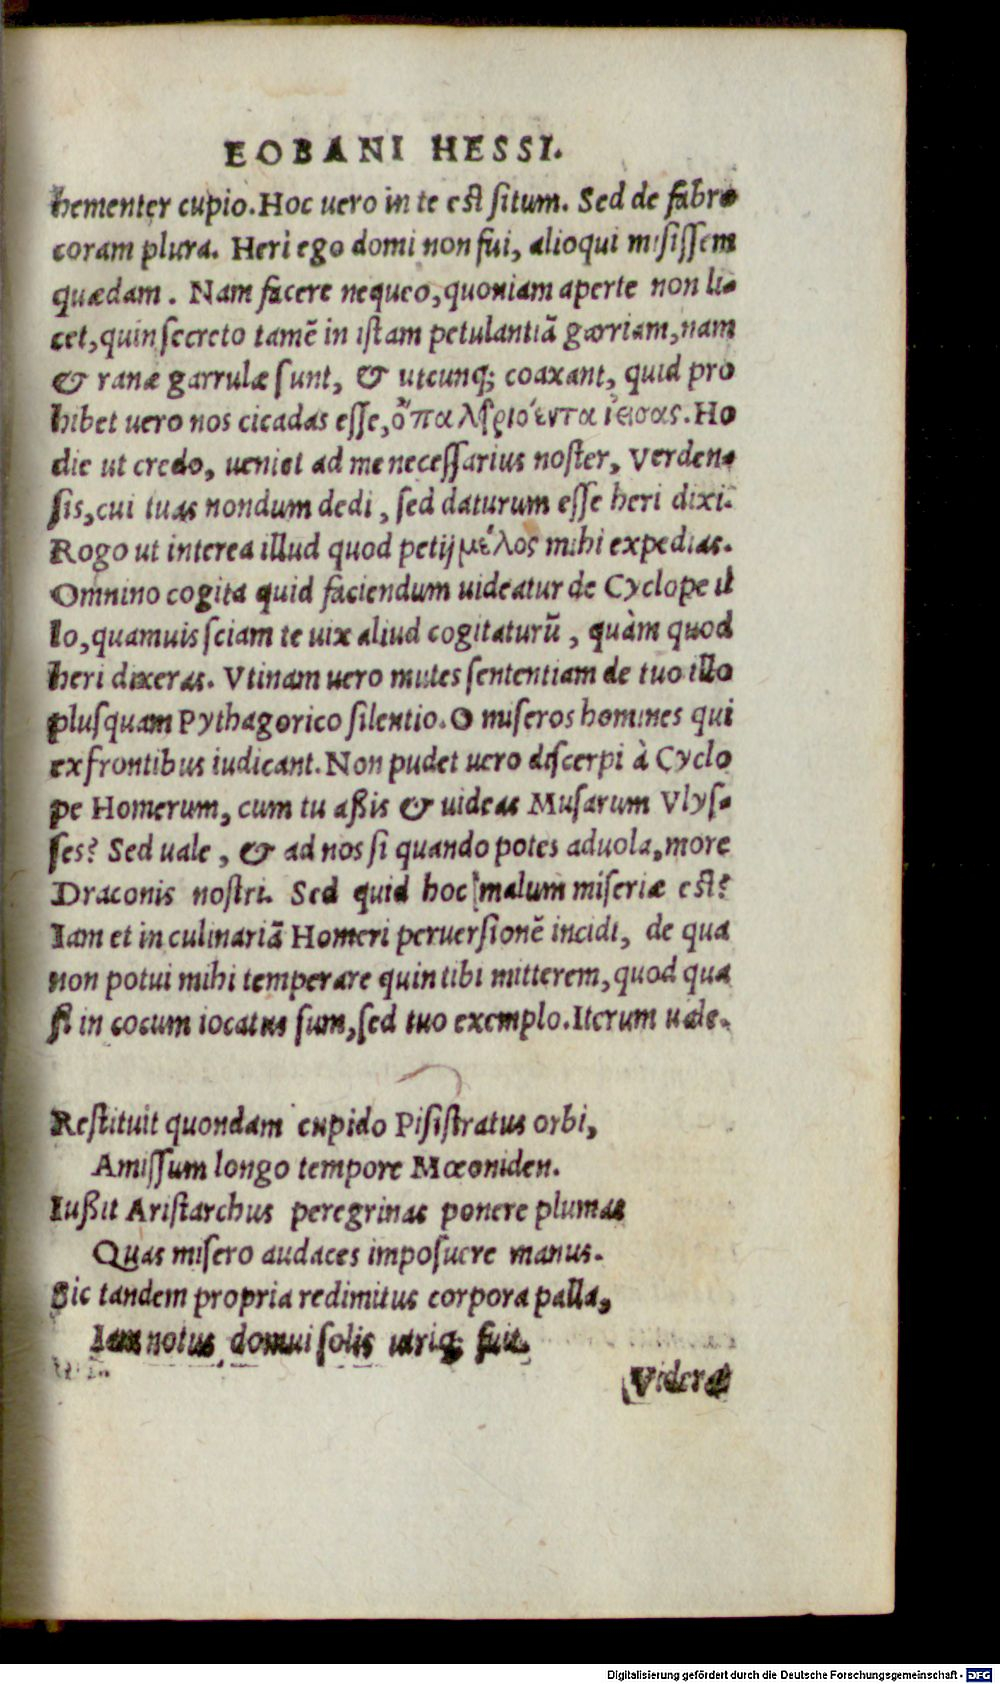 EOBANI HESSI.
hementer cupio. Hoc uero in te est situm. Sed de fabro
coram plura. Heri ego domi non fui, alioqui misissem
quædam. Nam facere nequeo, quoniam aperte non li-
cet, quin secreto tamẽ in istam petulantiã garriam, nam
& ranæ garrulæ sunt, & utcunq; coaxant, quid pro
hibet uero nos cicadas esse, ὄπα λειριόεντα ἱεισας. Ho
die ut credo, ueniet ad me necessarius noster, Verden-
sis, cui tuas nondum dedi, sed daturum esse heri dixi.
Rogo ut interea illud quod petij μέλος mihi expedias.
Omnino cogita quid faciendum uideatur de Cyclope il
lo, quamuis sciam te uix aliud cogitaturũ, quàm quod
heri dixeras. Vtinam uero mutes sententiam de tuo illo
plusquam Pythagorico silentio. O miseros homines qui
ex frontibus iudicant. Non pudet uero discerpi à Cyclo
pe Homerum, cum tu aßis & uideas Musarum Vlys-
ses? Sed uale, & ad nos si quando potes aduola, more
Draconis nostri. Sed quid hoc malum miseriæ est?
Iam et in culinariã Homeri peruersionẽ incidi, de qua
non potui mihi temperare quin tibi mitterem, quod qua
si in cocum iocatus sum, sed tuo exemplo. Iterum uale.
Restituit quondam cupido Pisistratus orbi,
Amissum longo tempore Mœoniden.
Iußit Aristarchus peregrinas ponere plumas
Quas misero audaces imposuere manus.
Sic tandem propria redimitus corpora palla,
Iam notus domui solis utriq; fuit.
Videræ
Digitalisierung gefördert durch die Deutsche Forschungsgemeinschaft - DFG